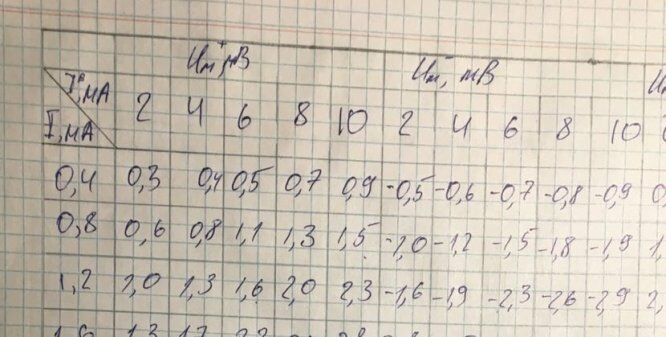 Uм⁺, мВ Uм⁻, мВ
I², мА 2 4 6 8 10 2 4 6 8 10
I, мА
0,4 0,3 0,4 0,5 0,7 0,9 -0,5 -0,6 -0,7 -0,8 -0,9
0,8 0,6 0,8 1,1 1,3 1,5 -1,0 -1,2 -1,5 -1,8 -1,9
1,2 1,0 1,3 1,6 2,0 2,3 -1,6 -1,9 -2,3 -2,6 -2,9